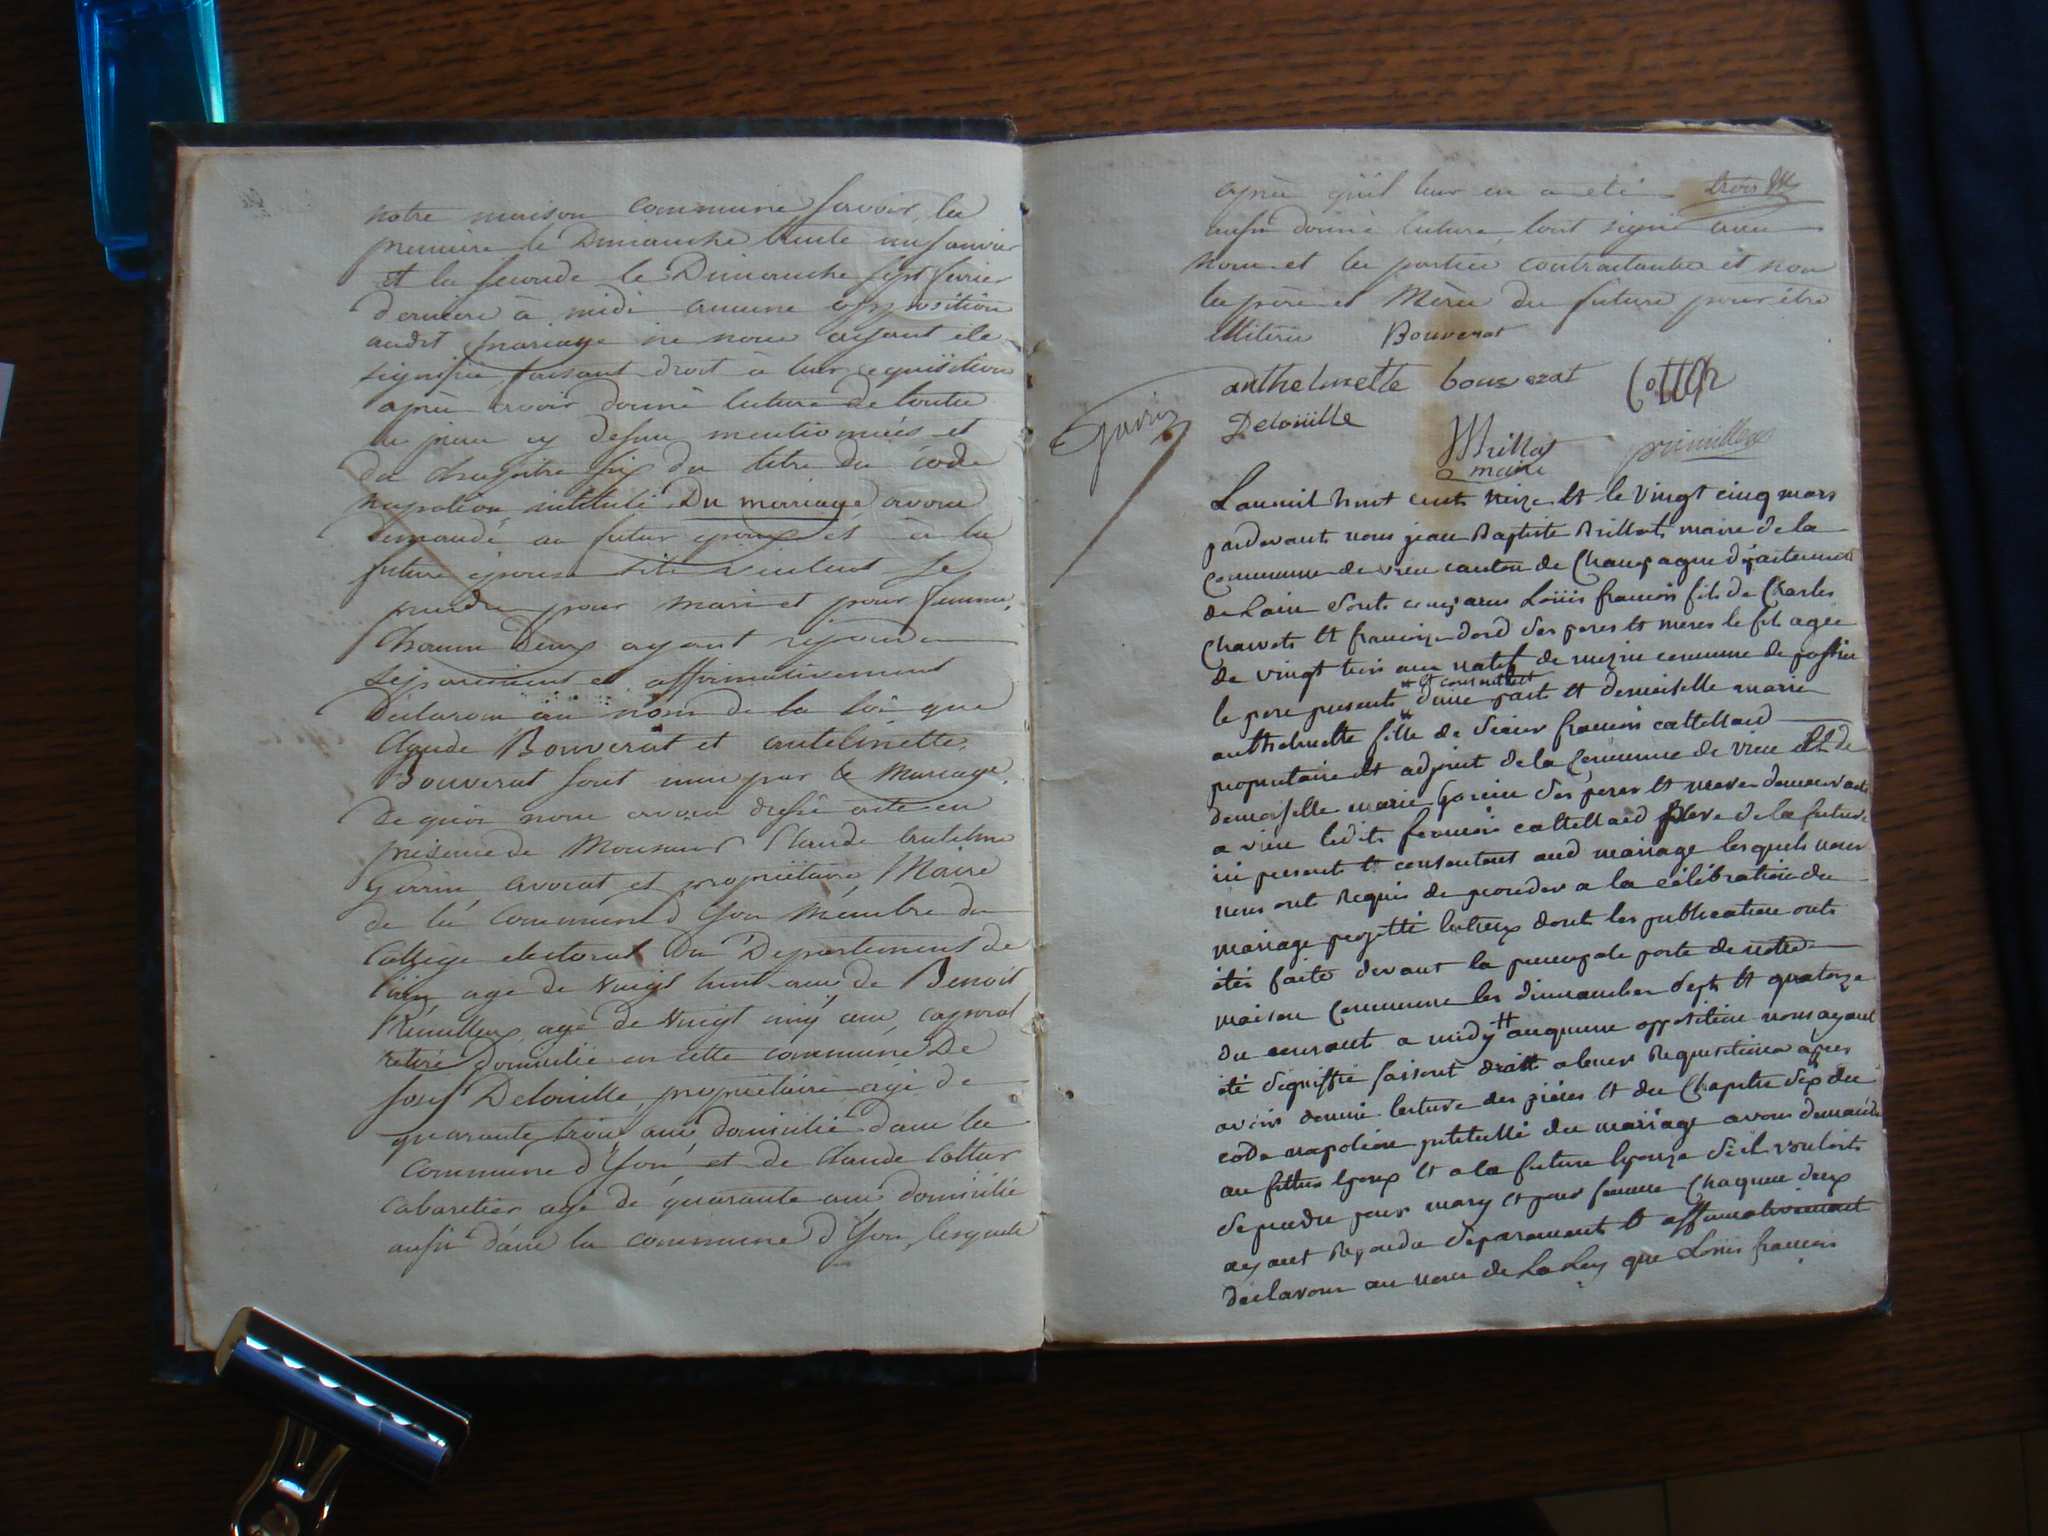 notre maison commune savoir, la
premiere le Dimanche trente un Janvier
et la seconde le Dimanche sept fevrier
derniere à midi aucune opposition
audit mariage ne nous ayant ete
signifié faisant droit à leur requisition
après avoir donné lecture de toutes
les pieces cy dessus mentionnées et
du chapitre six du titre du code
Napoleon intitulé Du marriage avons
demandé au futur epoux et à la
future epouse s'ils veulent se
prendre pour mari et pour femme,
chacun deux ayant repondu
séparément et affirmativement
Declarons au nom de la loi que
Claude Bouverat et antelmette
Bouverat sont unis par le Mariage.
De quoi nous avons dressé acte en
présence de Monsieur Claude Anthelme
avocat et propriétaire Maire
de la Commune d'Yon Membre du
College electoral du Departement de
l'ain agé de vingt huit ans de Benoit
agé de vingt cinq ans, caporal
retiré domicilié en cette commune De
Josef Delouille propriétaire agé de
quarante trois ans domicilié dans la
Commune d'Yon, et de Claude Cottier
cabaretier agé de quarante ans domicilié
aussi dans la commune d'Yon, lesquels
après qu'il leur en a eté trois
aussi donné lecture, l'ont signé avec
nous et les parties contractantes et non
les père et Mère du futur pour être
illiteré Bouverat
anthelmette bouverat
Delouille
Brillat
maire
Lan mil huit cent treize et le vingt cinq mars
pardevant nous jean Baptiste Brillat maire de la
commune de vieu canton de Champagne département
de Lain sont comparus Loüis francois fils de Charles
Chavets et francoise dord ses peres et meres le fils agée
de vingt trois ans natif de commune de
et consentent
le pere present d'une part et demoiselle marie
anthelmette fille de sieur francois cattelland
propriétaire et adjoint de la commune de vieu et de
demoiselle marie ses peres et meres demeurant
a vieu ledit francois cattelland père de la future
ici present et consentant aud mariage lesquels nous
nous ont requis de proceder a la célébration du
mariage projetté entreux dont les publications ont
étés faites devant la principale porte de notre
maison commune les dimanches sept et quatorze
du courant a midy aucqune opposition nous ayant
été signiffié faisant droitt a leur Requisitions apres
avoir donné lecture des pièces et du Chapitre six du
code napoléon intitullé du mariage avons demandé
au futtur Epoux et a la future Epouze s'éil vouloit
se prendre pour mary et pour femme chaqune deux
ayant Repondu séparament et affirmativement
déclarons au nom de La Loy que Loüis francois